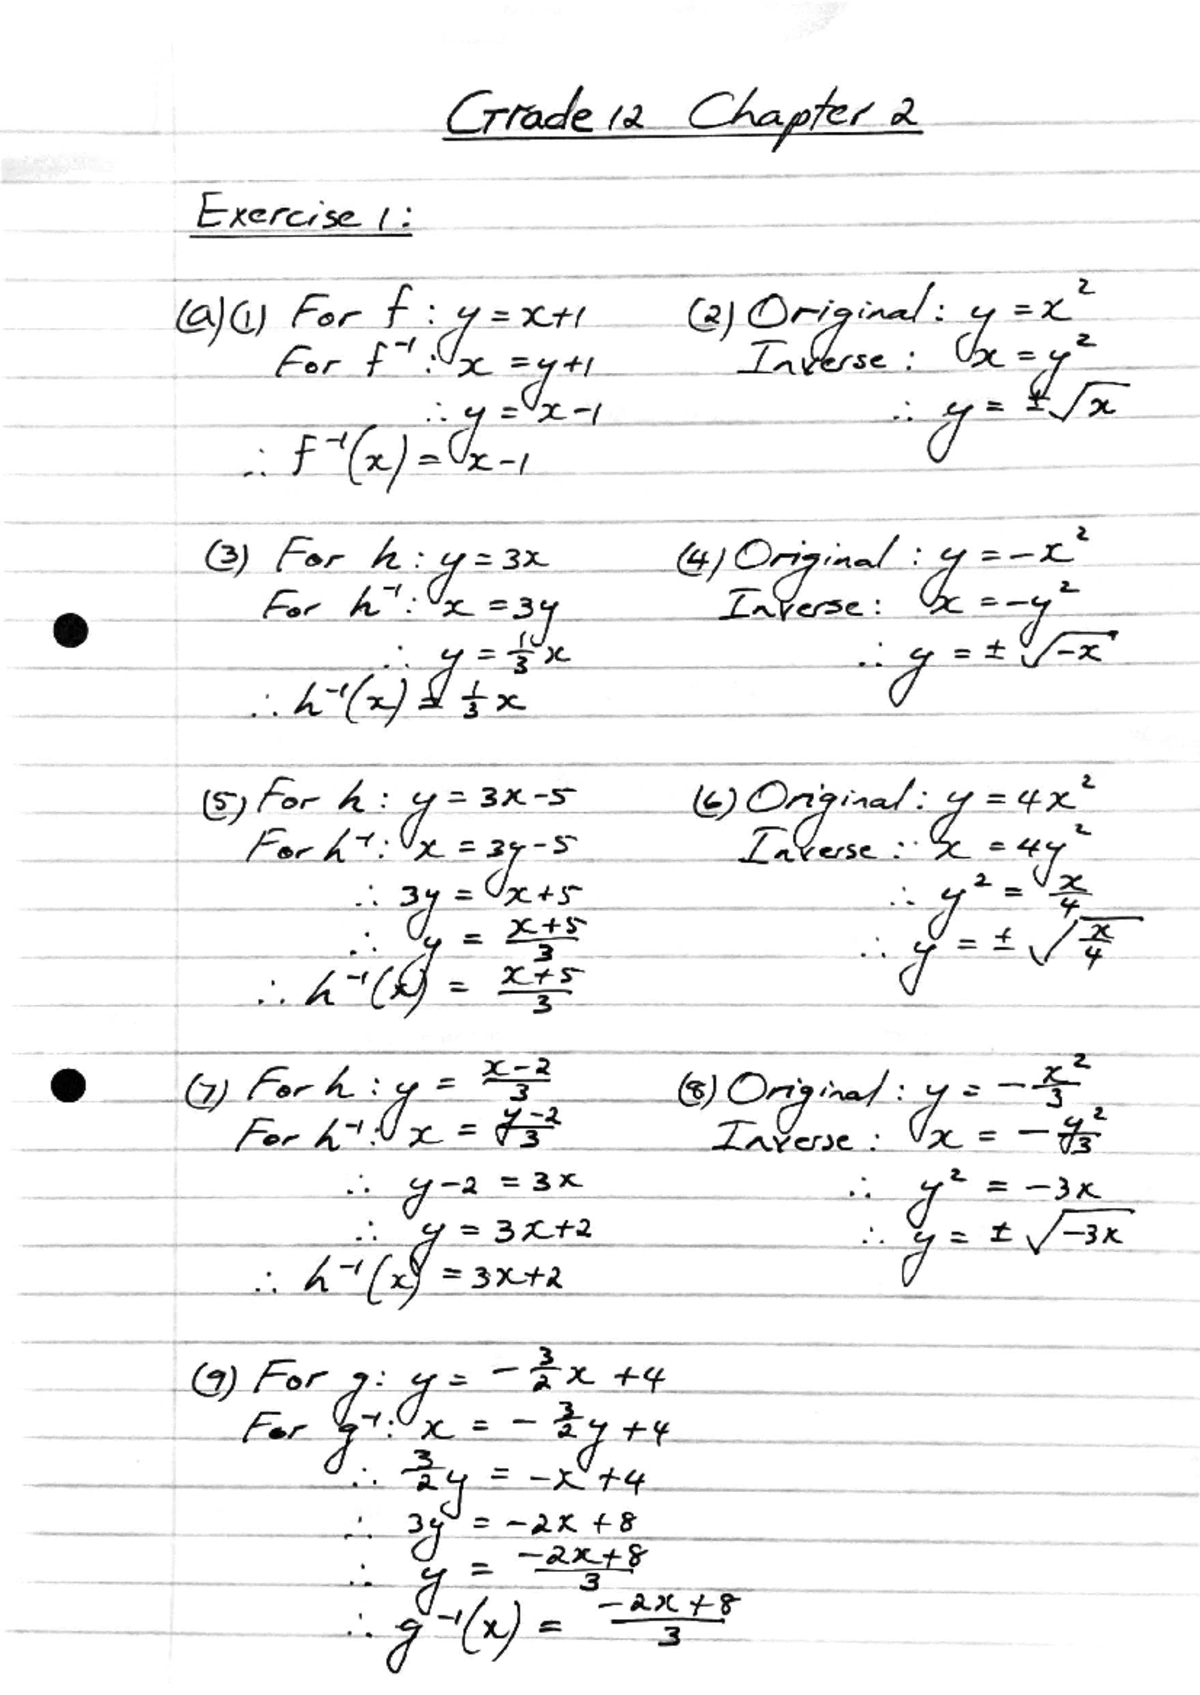 Grade 12 Chapter 2
Exercise 1:
(a)(1) For f : y = x+1
For f⁻¹ : x = y+1
∴ y = x-1
∴ f⁻¹(x) = x-1
(2) Original : y = x²
Inverse : x = y²
∴ y = ±√x
(3) For h : y = 3x
For h⁻¹ : x = 3y
∴ y = 1/3 x
∴ h⁻¹(x) = 1/3 x
(4) Original : y = -x²
Inverse : x = -y²
∴ y = ±√-x
(5) For h : y = 3x-5
For h⁻¹ : x = 3y-5
∴ 3y = x+5
∴ y = x+5/3
∴ h⁻¹(x) = x+5/3
(6) Original : y = 4x²
Inverse : x = 4y²
∴ y² = x/4
∴ y = ±√x/4
(7) For h : y = x-2/3
For h⁻¹ : x = y-2/3
∴ y-2 = 3x
∴ y = 3x+2
∴ h⁻¹(x) = 3x+2
(8) Original : y = -x²/3
Inverse : x = -y²/3
∴ y² = -3x
∴ y = ±√-3x
(9) For g : y = -3/2 x +4
For g⁻¹ : x = -3/2 y +4
∴ 3/2 y = -x +4
∴ 3y = -2x +8
∴ y = -2x+8/3
∴ g⁻¹(x) = -2x+8/3